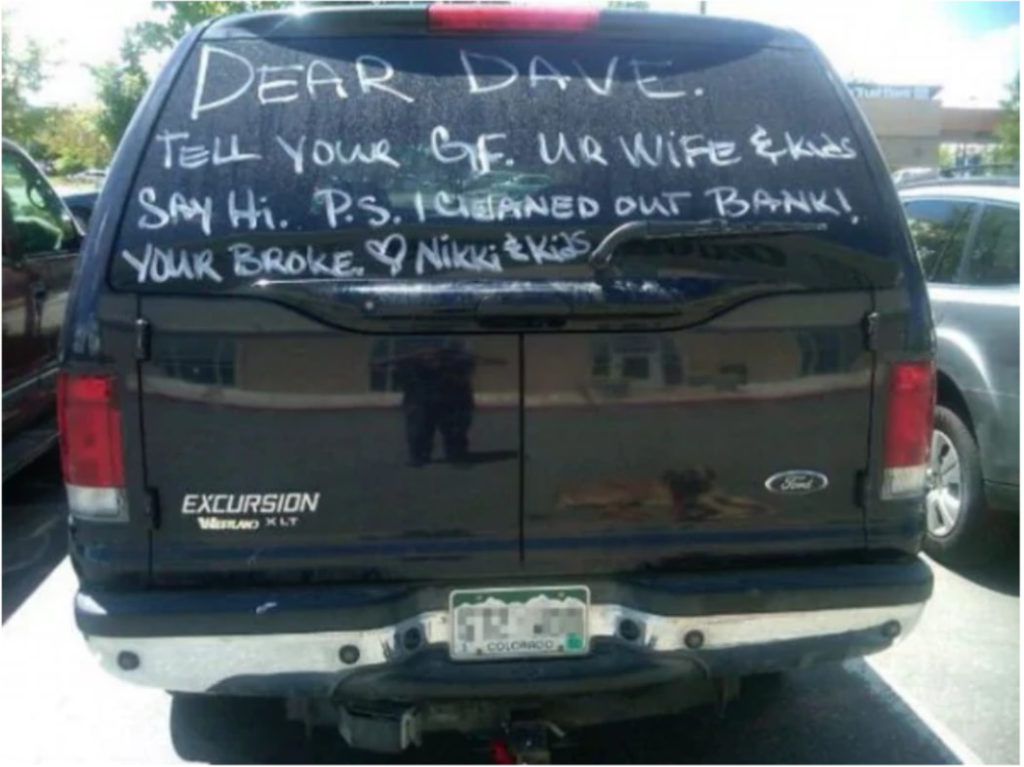 DEAR DAVE.
TELL YOUR GF. UR WIFE & KIdS
SAY Hi. P.S. I CLEANED OUT BANK!
YOUR BROKE. ♡ Nikki & KidS
EXCURSION
XLT
Ford
COLORADO